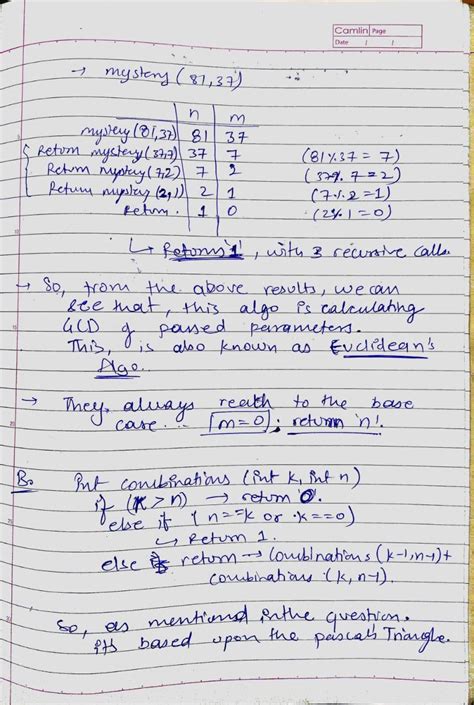 Camlin Page
Date / /
→ mystery (81,37)
n m
mystery (81,37) 81 37
Return mystery (37,7) 37 7 (81%37 = 7)
Return mystery (7,2) 7 2 (37%7 = 2)
Return mystery (2,1) 2 1 (7%2 = 1)
Return. 1 0 (2%1 = 0)
↳ Returns '1', with 3 recursive calls.
→ So, from the above results, we can
see that, this algo is calculating
GCD of passed parameters.
This, is also known as Euclidean's
Algo.
→ They, always reach to the base
case... m=0; return 'n'.
B. Int combinations (int k, int n)
if (k > n) → return 0.
else if (n==k or k==0)
↳ Return 1.
else return → Combinations (k-1,n-1)+
combinations (k, n-1).
So, as mentioned in the question.
its based upon the pascal's Triangle.